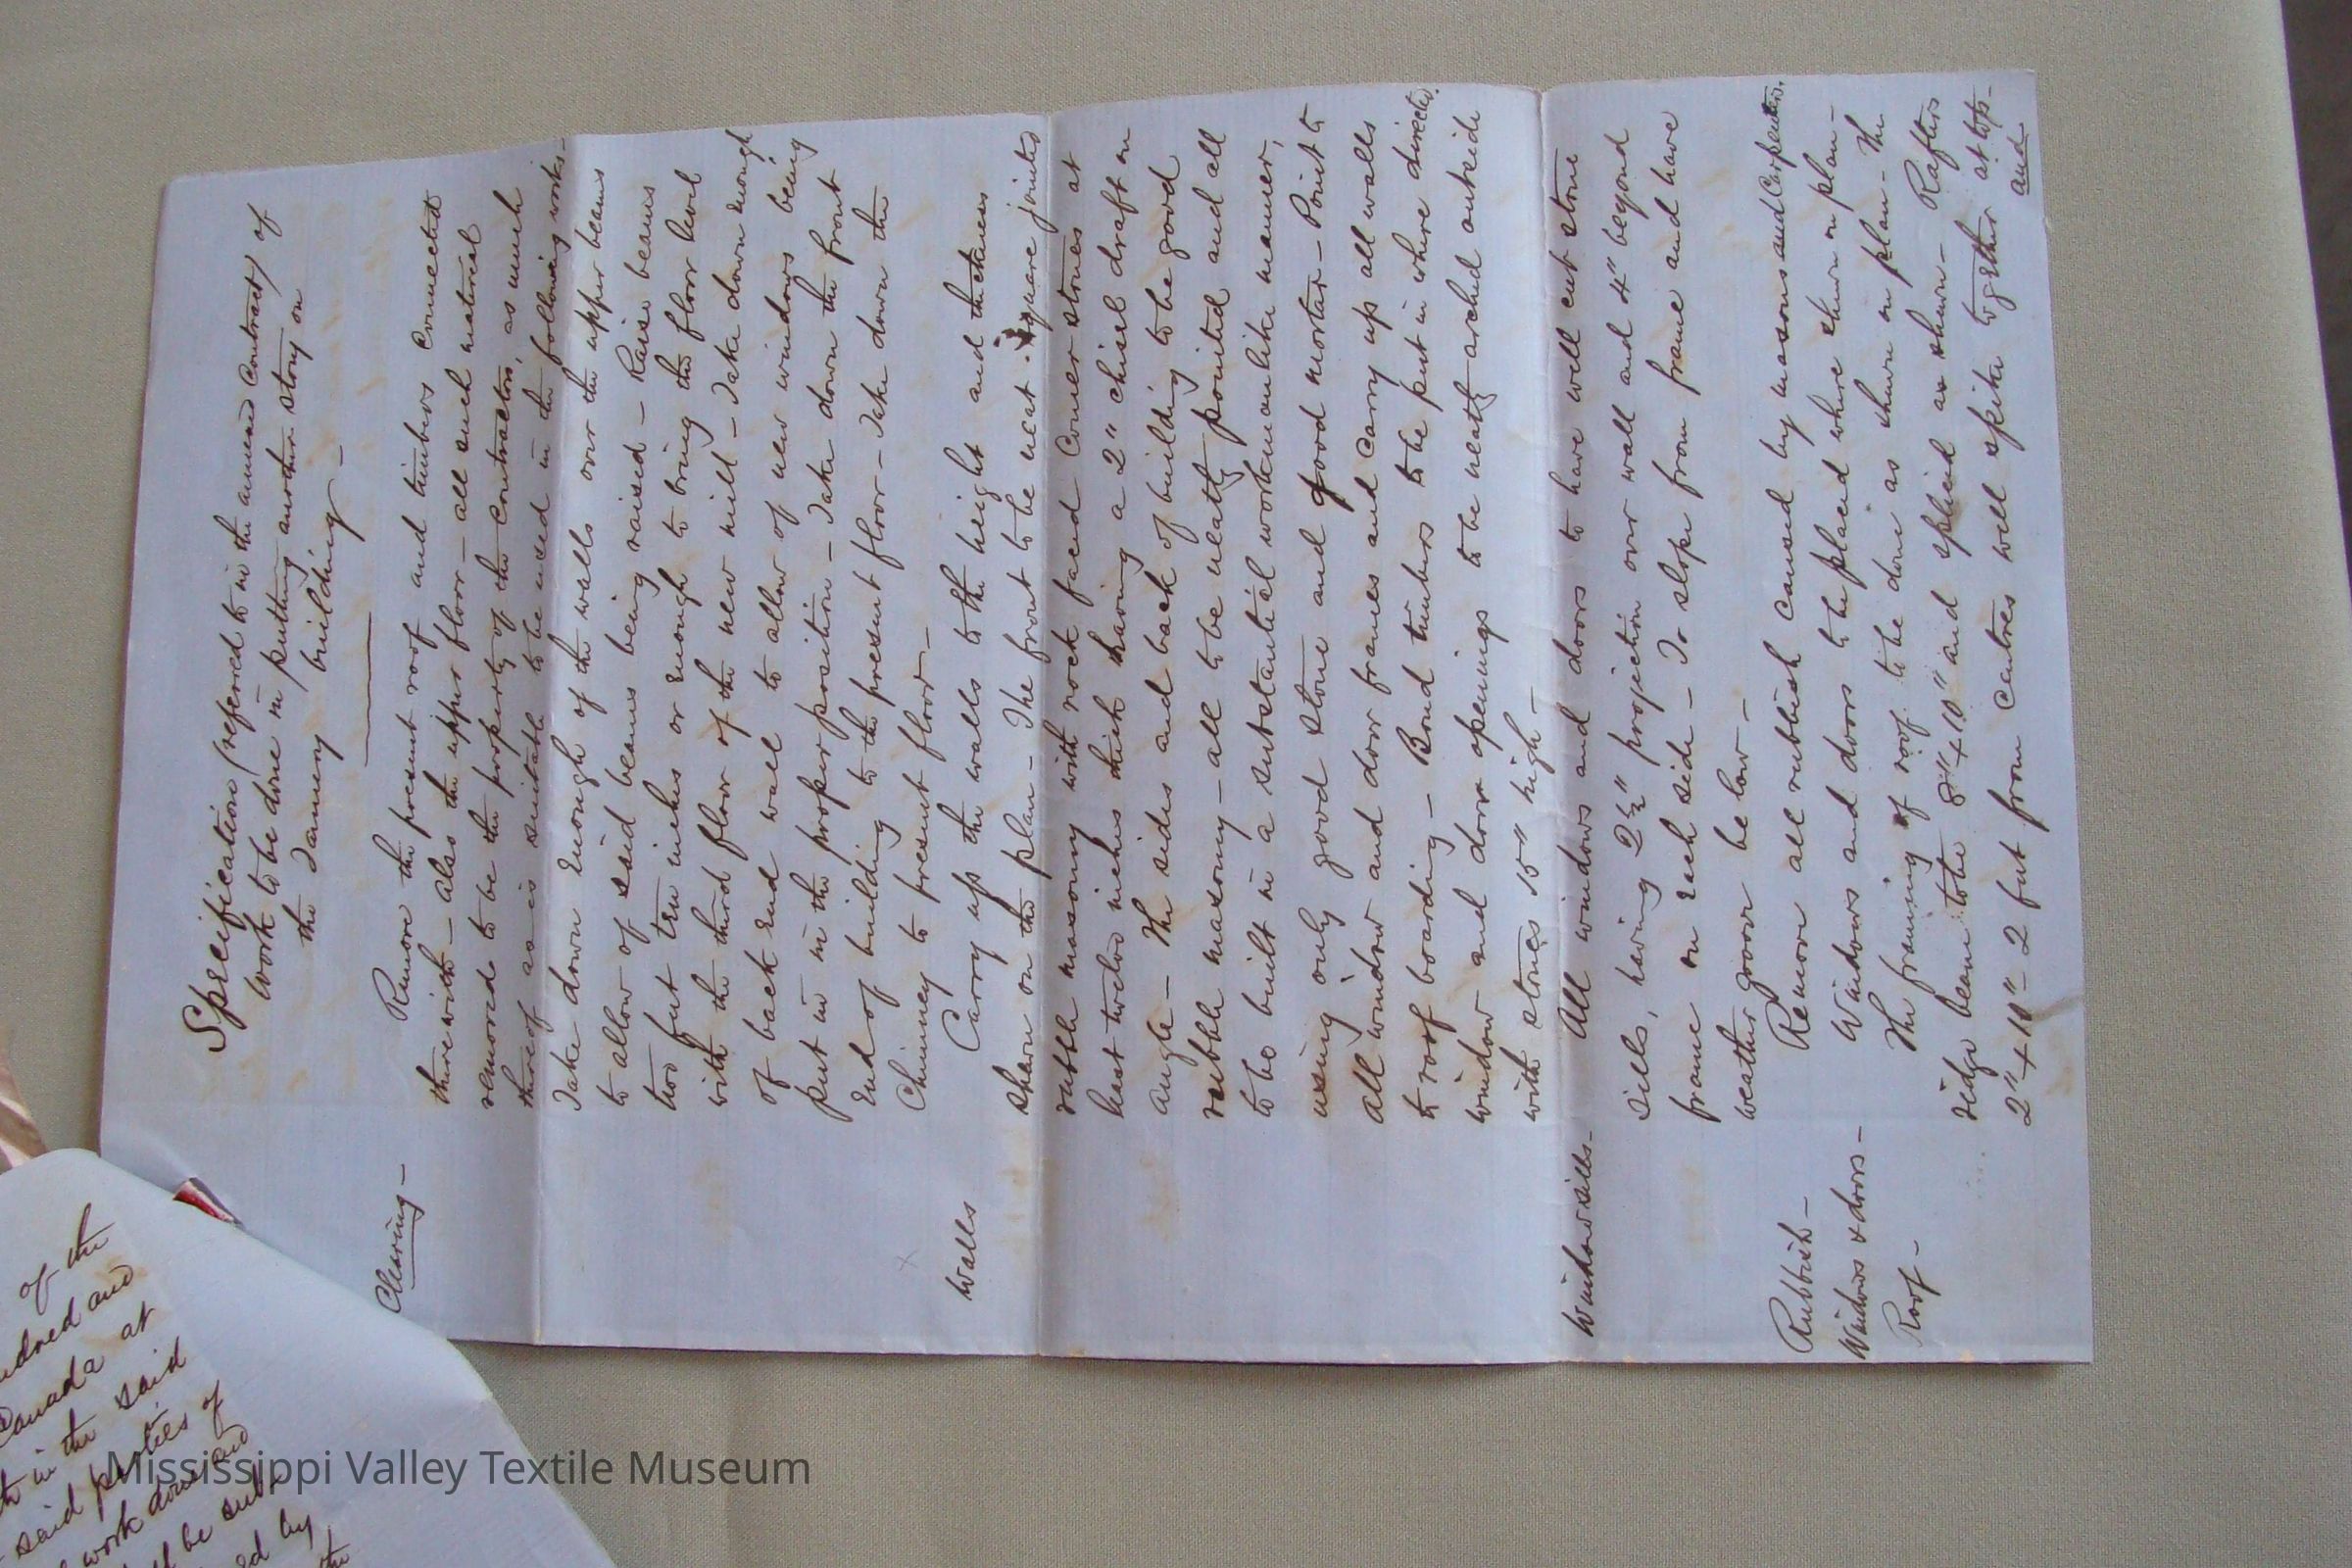 Specification (referred to in the annexed Contract) of
work to be done in putting another story on
the Tannery building —
Clearing —
Remove the present roof and timbers connected
therewith — also the upper floor — all such material
removed to be the property of the Contractors, as much
thereof as is suitable to be used in the following works —
Take down enough of the walls over the upper beams
to allow of said beams being raised — Raise beams
two feet ten inches or enough to bring the floor level
with the third floor of the new mill — Take down enough
of back end wall to allow of new windows being
put in in the proper position — Take down the front
end of building to the present floor — Take down the
Chimney to present floor —
Walls
Carry up the walls to the height and thickness
shewn on the plan — The front to be neat square jointed
rubble masonry with rock faced Corner stones at
least twelve inches thick having a 2" chisel draft on
angle — The sides and back of building to be good
rubble masonry — all to be neatly pointed and all
to be built in a substantial workmanlike manner,
using only good stone and good mortar — Point to
all window and door frames and carry up all walls
to roof boarding — Bond timbers to be put in where directed.
window and door openings to be neatly arched outside
with stones 15" high —
Window sills —
All windows and doors to have well cut stone
sills, having 2½" projection over wall and 4" beyond
frame on each side — To slope from frame and have
weather groove below —
Rubbish —
Remove all rubbish caused by masons and Carpenters.
Windows & doors —
Windows and doors to be placed where shewn on plan —
Roof —
The framing of roof to be done as shewn on plan — The
ridge beam to be 8" + 10" and spliced as shewn — Rafters
2" + 10" — 2 feet from centres well spiked together at top —
and
of the
hundred and
Canada at
in the said
said parties of
work done and
be sub
by
the
Mississippi Valley Textile Museum